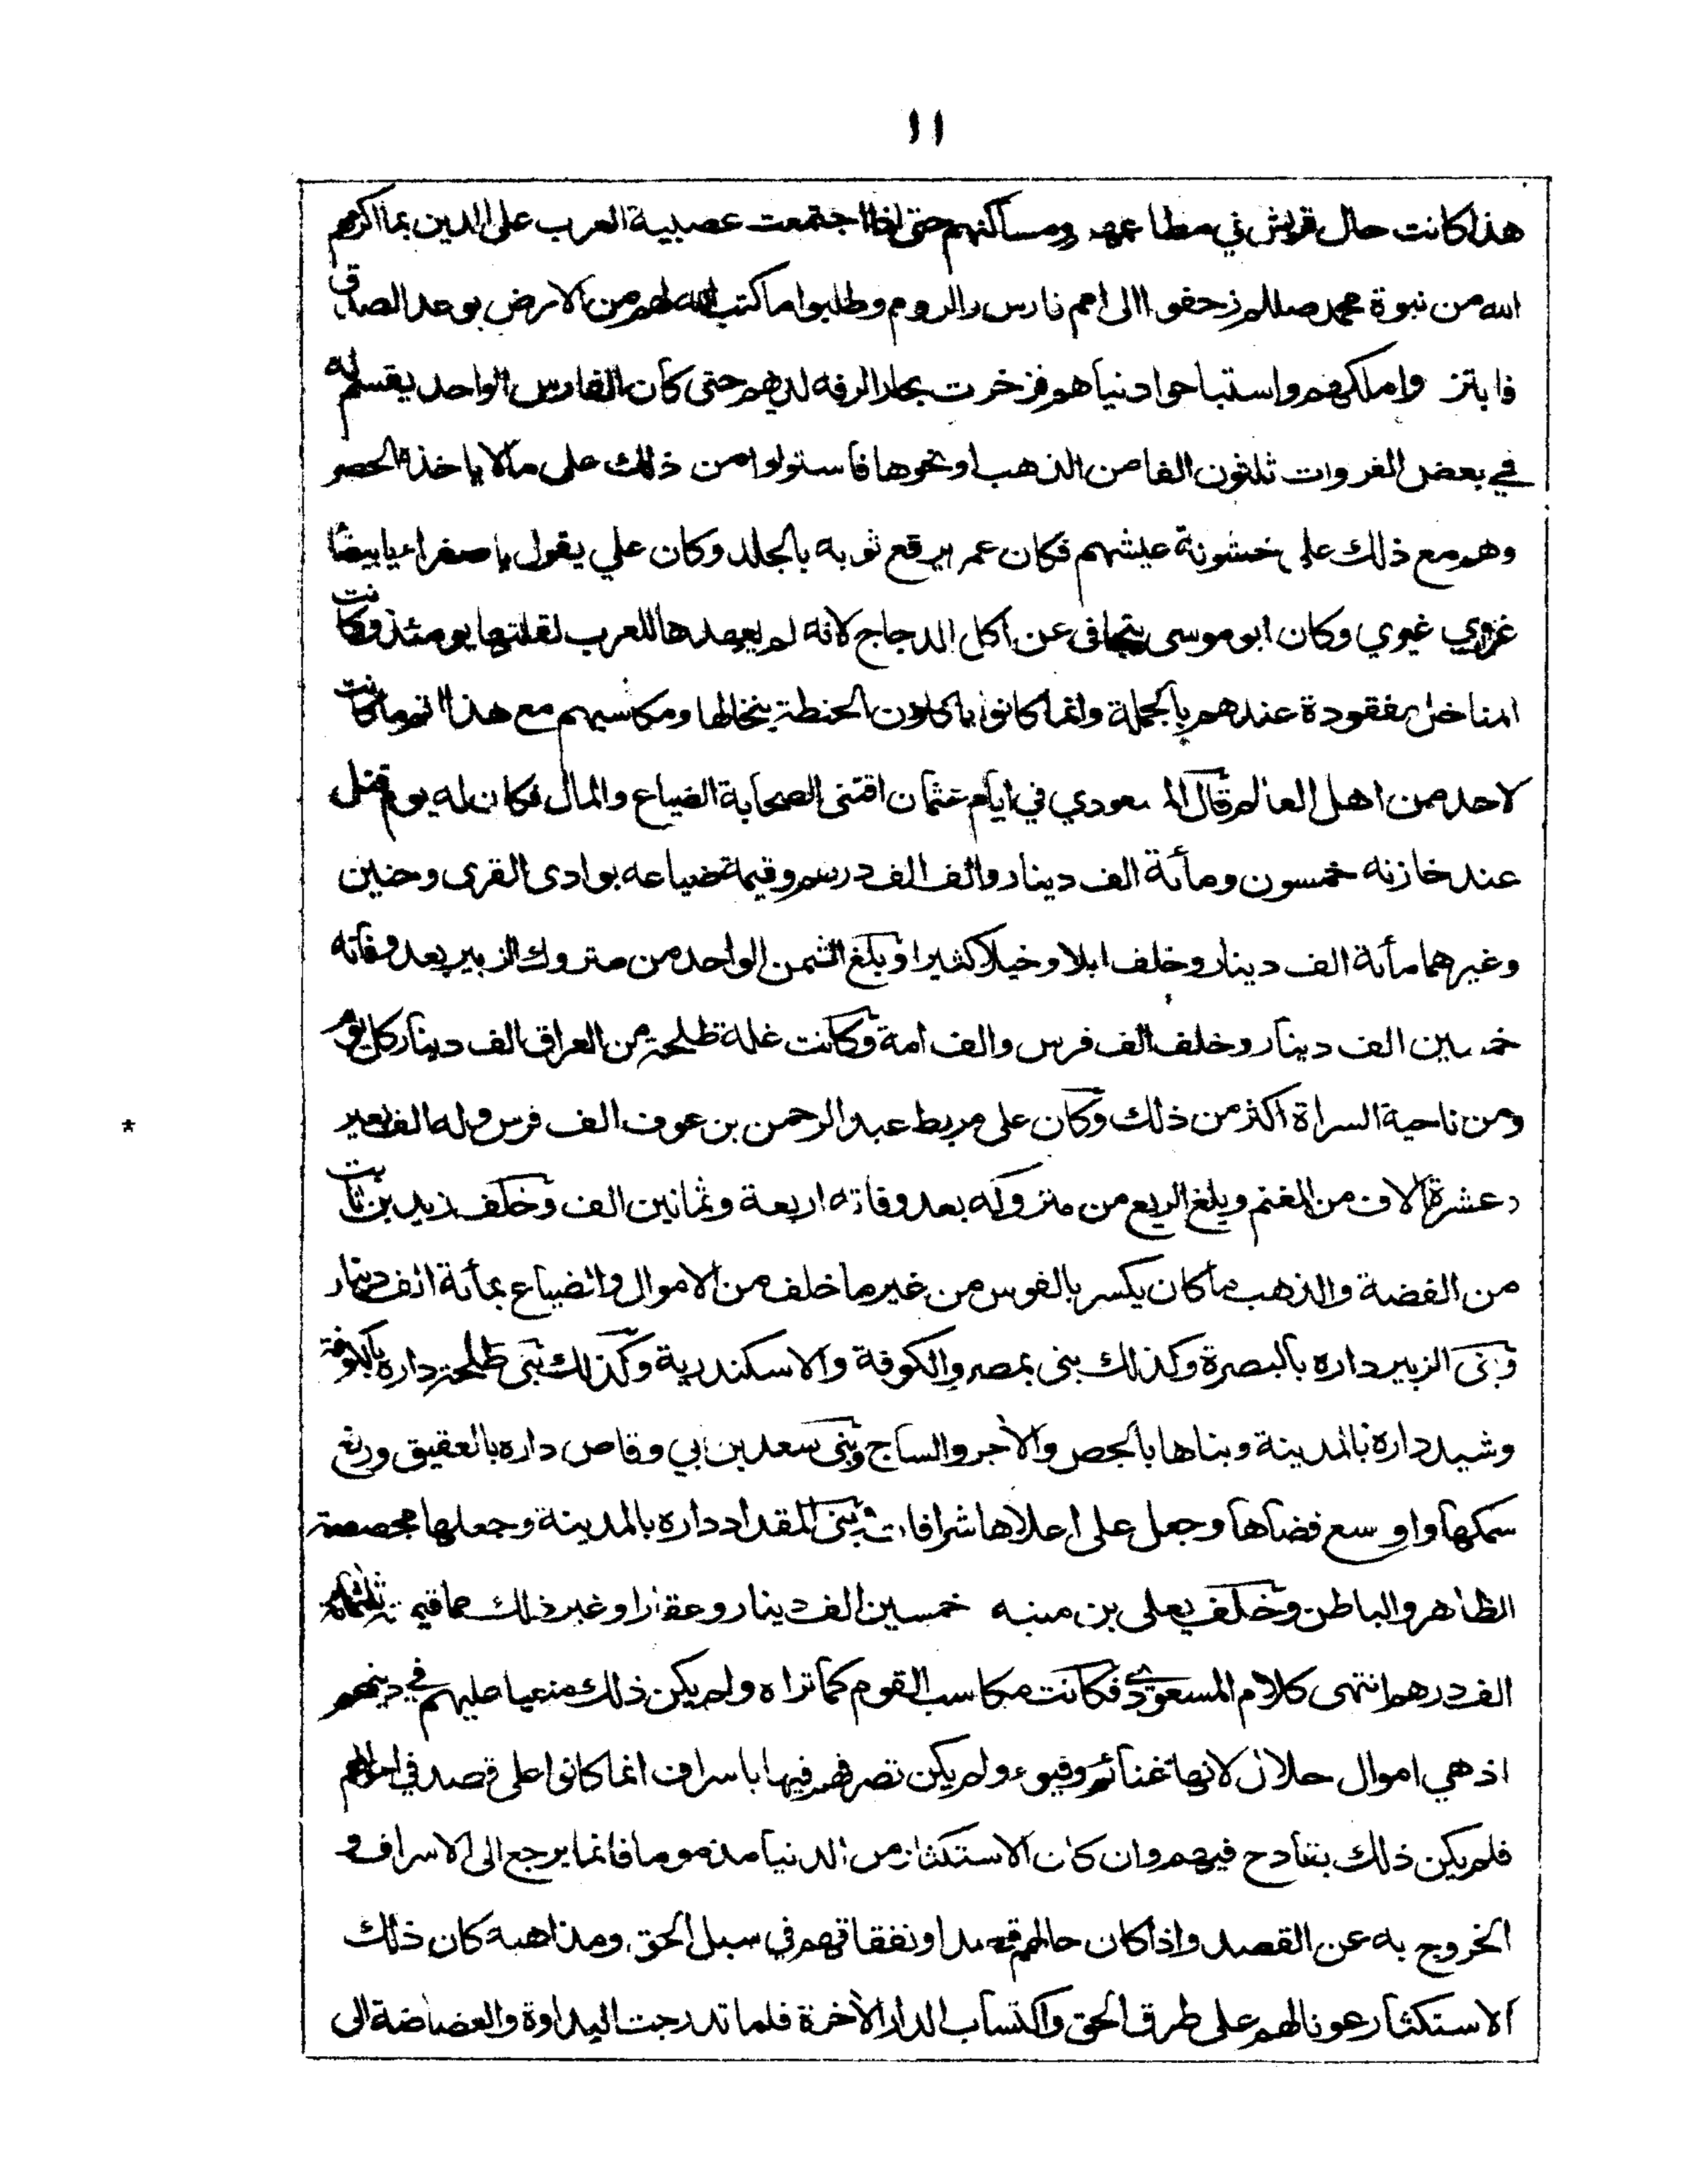 ١١
هذا كانت حال قريش في مطاعمهم ومساكنهم حتى اذا اجتمعت عصبية العرب على الدين بما اكرمهم
الله من نبوة محمد صللم زحفوا الى امم فارس والروم وطلبوا ما كتب الله لهم من الارض بوعد الصدق
فابتزوا ملكهم واستباحوا دنياهم فزخرت بحار الرفه لديهم حتى كان الفارس الواحد يقسم له
في بعض الغروات ثلثون الفا من الذهب او نحوها فاستولوا من ذلك على ما لا ياخذه الحصر
وهم مع ذلك على خشونة عيشهم فكان عمر يرقع ثوبه بالجلد وكان علي يقول يا صفراء يا بيضا
غري غيري وكان ابو موسى يتجافى عن اكل الدجاج لانه لم يعهدها للعرب لقلتها يومئذ وكانت
المناخل مفقودة عندهم بالجملة وانما كانوا ياكلون الحنطة بنخالها ومكاسبهم مع هذا اتم ما كانت
لاحد من اهل العالم قال المسعودي في ايام عثمان اقتنى الصحابة الضياع والمال فكان له يوم قتل
عند خازنه خمسون ومأئة الف دينار والف الف درهم وقيمة ضياعه بوادى القرى وحنين
وغيرهما مأئة الف دينار وخلف ابلا وخيلا كثيرا وبلغ الثمن الواحد من متروك الزبير بعد وفاته
خمسين الف دينار وخلف الف فرس والف امة وكانت غلة طلحة من العراق الف دينار كل يوم
ومن ناحية السراة اكثر من ذلك وكان على مربط عبد الرحمن بن عوف الف فرس وله الف بعير
وعشرة الاف من الغنم وبلغ الربع من متروكه بعد وفاته اربعة وثمانين الف وخلف زيد بن ثابت
من الفضة والذهب ما كان يكسر بالفوس من غير ما خلف من الاموال والضياع بمأئة الف دينار
وبنى الزبير داره بالبصرة وكذلك بنى بمصر والكوفة والاسكندرية وكذلك بنى طلحة داره بالكوفة
وشيد داره بالمدينة وبناها بالجص والآجر والساج وبنى سعد بن ابي وقاص داره بالعقيق ورفع
سمكها واوسع فضاها وجعل على اعلاها شرافات وبنى المقداد داره بالمدينة وجعلها مجصصة
الظاهر والباطن وخلف يعلى بن منبه خمسين الف دينار وعقارا وغير ذلك مما قيمته ثلثمائة
الف درهم انتهى كلام المسعودي فكانت مكاسب القوم كما تراه ولم يكن ذلك منعيا عليهم في دينهم
اذ هي اموال حلال لانها غنائم وفيوء ولم يكن تصرفهم فيها باسراف انما كانوا على قصد في احوالهم
فلم يكن ذلك بقادح فيهم وان كان الاستكثار من الدنيا مذموما فانما يرجع الى الاسراف و
الخروج به عن القصد واذا كان حالهم قصدا ونفقاتهم في سبل الحق ومذاهبه كان ذلك
* الاستكثار عونا لهم على طرق الحق واكتساب الدار الآخرة فلما تدرجت البداوة والغضاضة الى